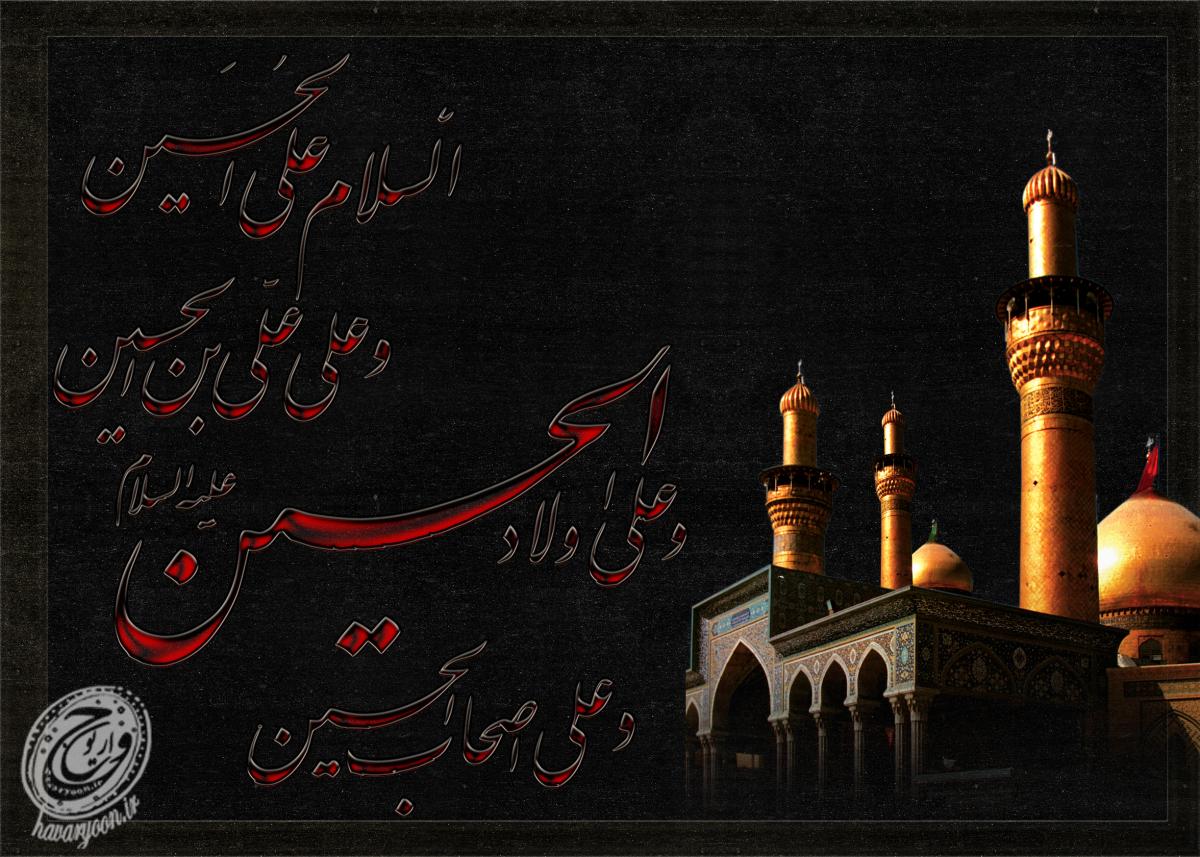 السلام علی الحُسَین
و علی علّی بن الحسین
و علی اولاد الحسین
علیه السلام
و علی اصحاب الحسین
havaryoon.ir